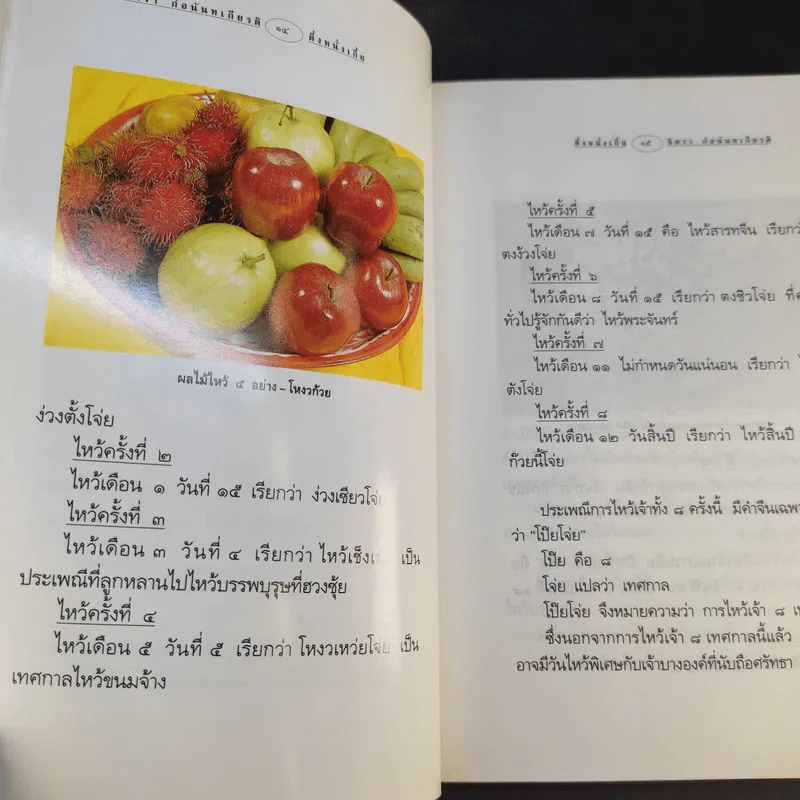 ก่อนันทเกียรติ ๑๔ ตึ่งหนั่งเกี้ย
ผลไม้ไหว้ ๔ อย่าง – โหงวก้วย
ง่วงตั้งโจ่ย
ไหว้ครั้งที่ ๒
ไหว้เดือน ๑ วันที่ ๑๕ เรียกว่า ง่วงเซียวโจ่ย
ไหว้ครั้งที่ ๓
ไหว้เดือน ๓ วันที่ ๔ เรียกว่า ไหว้เช็งเ เป็น
ประเพณีที่ลูกหลานไปไหว้บรรพบุรุษที่ฮวงซุ้ย
ไหว้ครั้งที่ ๔
ไหว้เดือน ๕ วันที่ ๕ เรียกว่า โหงวเหว่ยโจ่ย เป็น
เทศกาลไหว้ขนมจ้าง
ตึ่งหนั่งเกี้ย ๑๕ จิตรา ก่อนันทเกียรติ
ไหว้ครั้งที่ ๕
ไหว้เดือน ๗ วันที่ ๑๕ คือ ไหว้สารทจีน เรียกว่
ตงง้วงโจ่ย
ไหว้ครั้งที่ ๖
ไหว้เดือน ๘ วันที่ ๑๕ เรียกว่า ตงชิวโจ่ย ที่ค
ทั่วไปรู้จักกันดีว่า ไหว้พระจันทร์
ไหว้ครั้งที่ ๗
ไหว้เดือน ๑๑ ไม่กำหนดวันแน่นอน เรียกว่า ไ
ตังโจ่ย
ไหว้ครั้งที่ ๘
ไหว้เดือน ๑๒ วันสิ้นปี เรียกว่า ไหว้สิ้นปี
ก๊วยนี้โจ่ย
ประเพณีการไหว้เจ้าทั้ง ๘ ครั้งนี้ มีคำจีนเฉพา
ว่า “โป๊ยโจ่ย”
โป๊ย คือ ๘
โจ่ย แปลว่า เทศกาล
โป๊ยโจ่ย จึงหมายความว่า การไหว้เจ้า ๘ เ
ซึ่งนอกจากการไหว้เจ้า ๘ เทศกาลนี้แล้ว
อาจมีวันไหว้พิเศษกับเจ้าบางองค์ที่นับถือศรัทธา